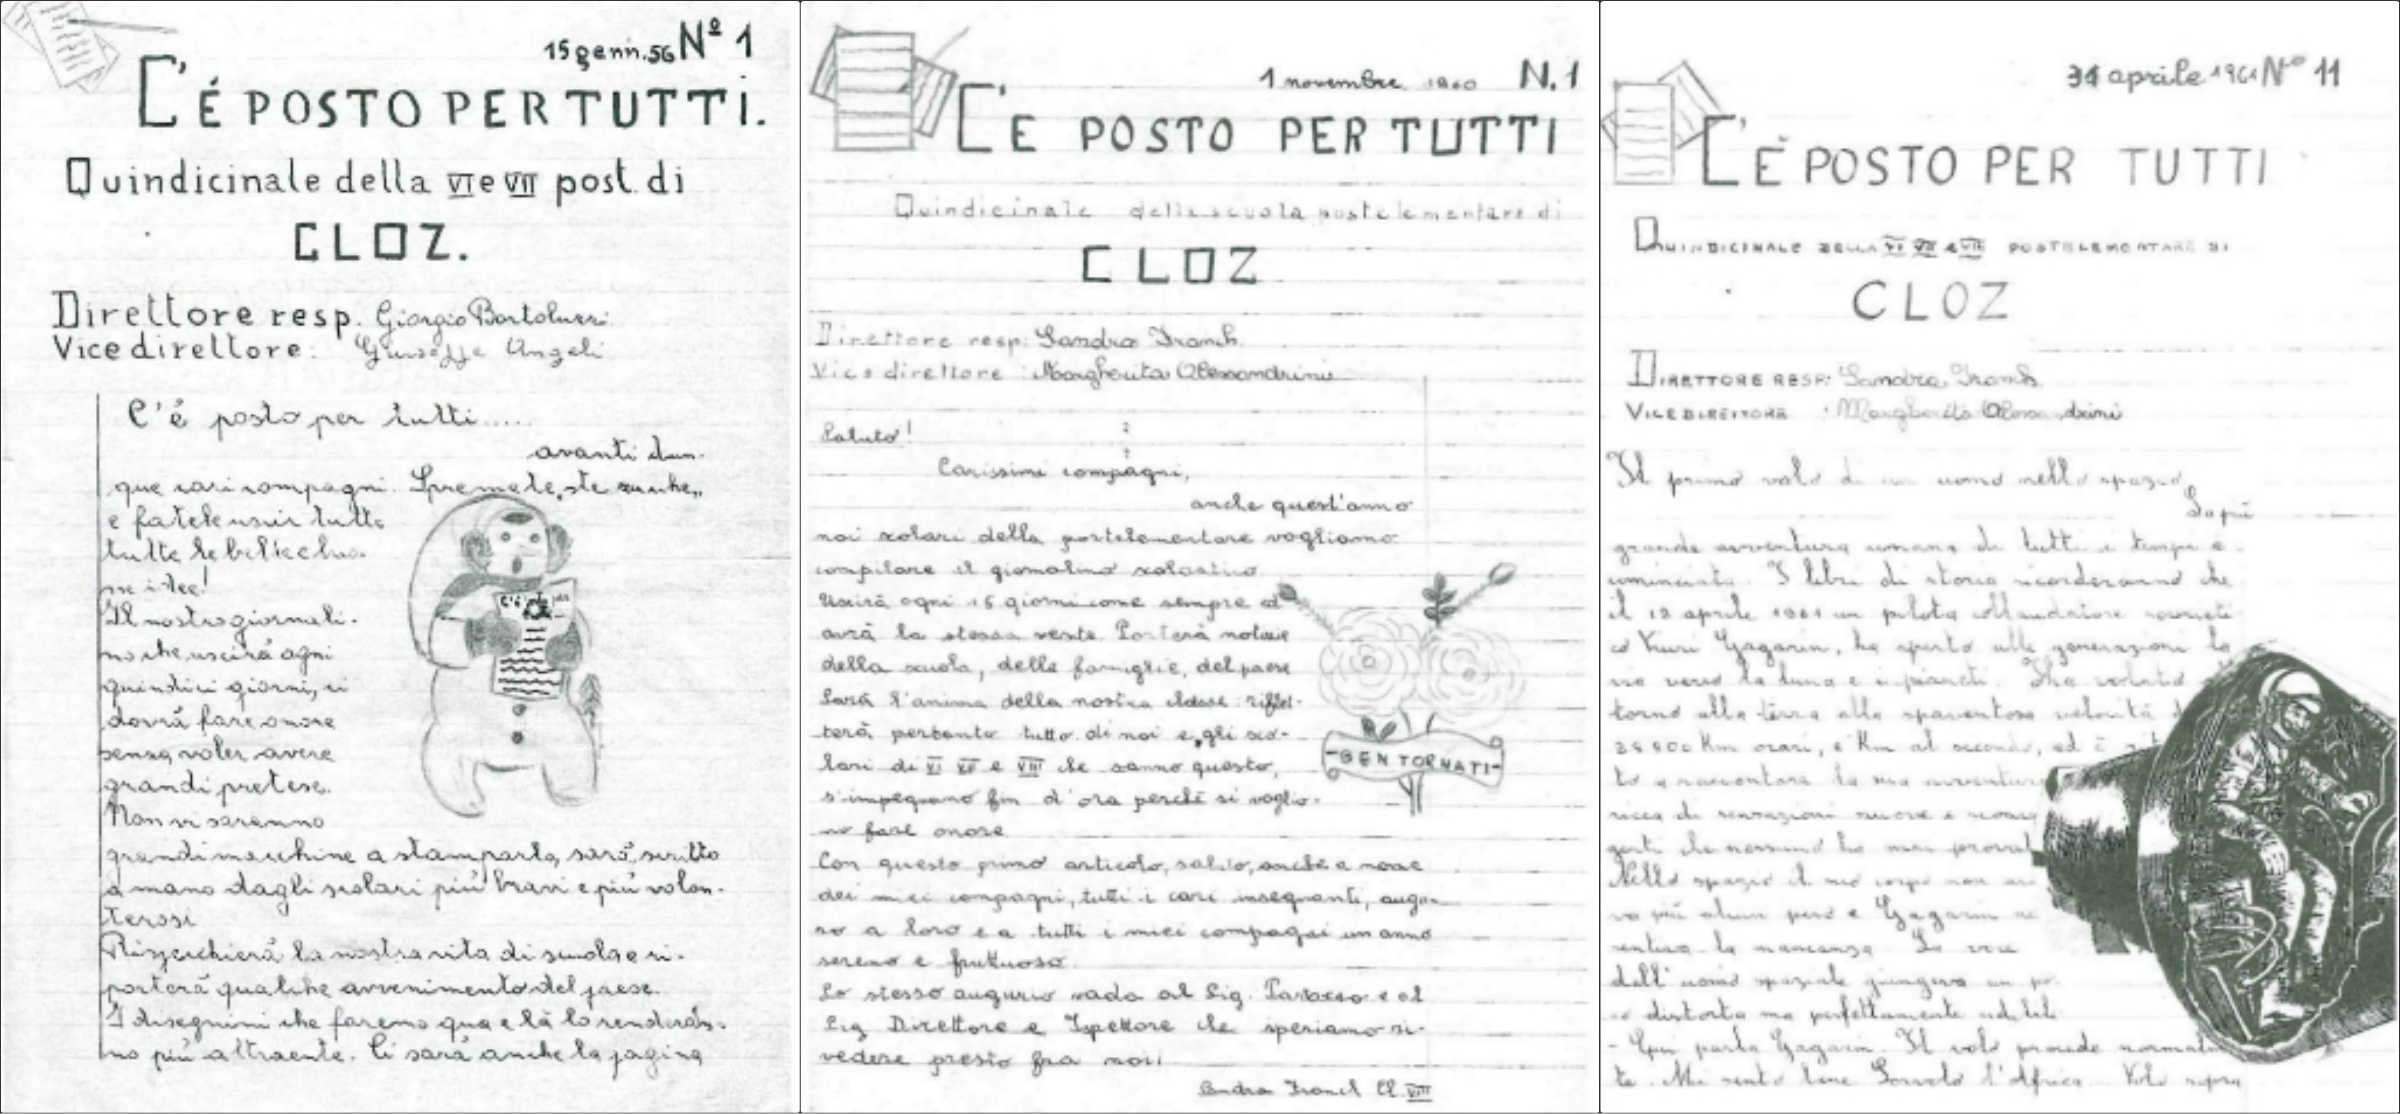 15 genn. 56 Nº 1
C'É POSTO PER TUTTI.
Quindicinale della VI e VII post. di
CLOZ.
Direttore resp. Giorgio Bortoluzzi
Vice direttore: Giuseppe Angeli
C'é posto per tutti.....
avanti dun-
que cari compagni. Spremete "ste zucche"
e fatele uscir tutte
tutte le belle e buo-
ne idee!
Il nostro giornali-
no che uscirà ogni
quindici giorni, ci
dovrà fare onore
senza voler avere
grandi pretese.
Non vi saranno
grandi macchine a stamparlo, sarà scritto
a mano dagli scolari più bravi e più volon-
terosi
Rispecchierà la nostra vita di scuola e ri-
porterà qualche avvenimento del paese.
I disegnini che faremo qua e là lo renderan-
no più attraente. Ci sarà anche la pagina
1 novembre 1960 N. 1
C'E POSTO PER TUTTI
Quindicinale della scuola postelementare di
CLOZ
Direttore resp: Sandra Franch
Vice direttore: Margherita Alessandrini
Saluto!
Carissimi compagni,
anche quest'anno
noi scolari della postelementare vogliamo
compilare il giornalino scolastico
Uscirà ogni 15 giorni come sempre ed
avrà la stessa veste. Porterà notizie
della scuola, delle famiglie, del paese
Sarà l'anima della nostra classe: riflet-
terà pertanto tutto di noi e gli sco-
lari di VI VII e VIII che sanno questo,
s'impegnano fin d'ora perché si voglio-
no fare onore
Con questo primo articolo, saluto, anche a nome
dei miei compagni, tutti i cari insegnanti, augu-
ro a loro e a tutti i miei compagni un anno
sereno e fruttuoso
Lo stesso augurio vada al Sig. Parroco e al
Sig Direttore e Ispettore che speriamo ri-
vedere presto fra noi!
Sandra Franch Cl. VIII
-BEN TORNATI-
aprile 1961 Nº 11
C'È POSTO PER TUTTI
QUINDICINALE DELLA VI VII e VIII POSTELEMENTARE DI
CLOZ
DIRETTORE RESP: Sandra Franch
VICEDIRETTORE: Margherita Alessandrini
Il primo volo di un uomo nello spazio
La più
grande avventura umana di tutti i tempi è
cominciata. I libri di storia ricorderanno che
il 12 aprile 1961 un pilota collaudatore sovieti
co Yuri Gagarin, ha aperto alle generazioni la
via verso la luna e i pianeti. Ha volato
torno alla terra alla spaventosa velocità
Km orari, 8 Km al secondo, ed è
to a raccontare la sua avventura
ricca di sensazioni nuove e
che nessuno ha mai
Nello spazio il mio corpo non
va più alcun peso e Gagarin
sentiva la mancanza. La voce
dell'uomo spaziale giungeva un po-
co distorta ma perfettamente udibile
- Qui parla Gagarin. Il volo procede
te. Mi sento bene Sorvolo l'Africa. Volo sopra